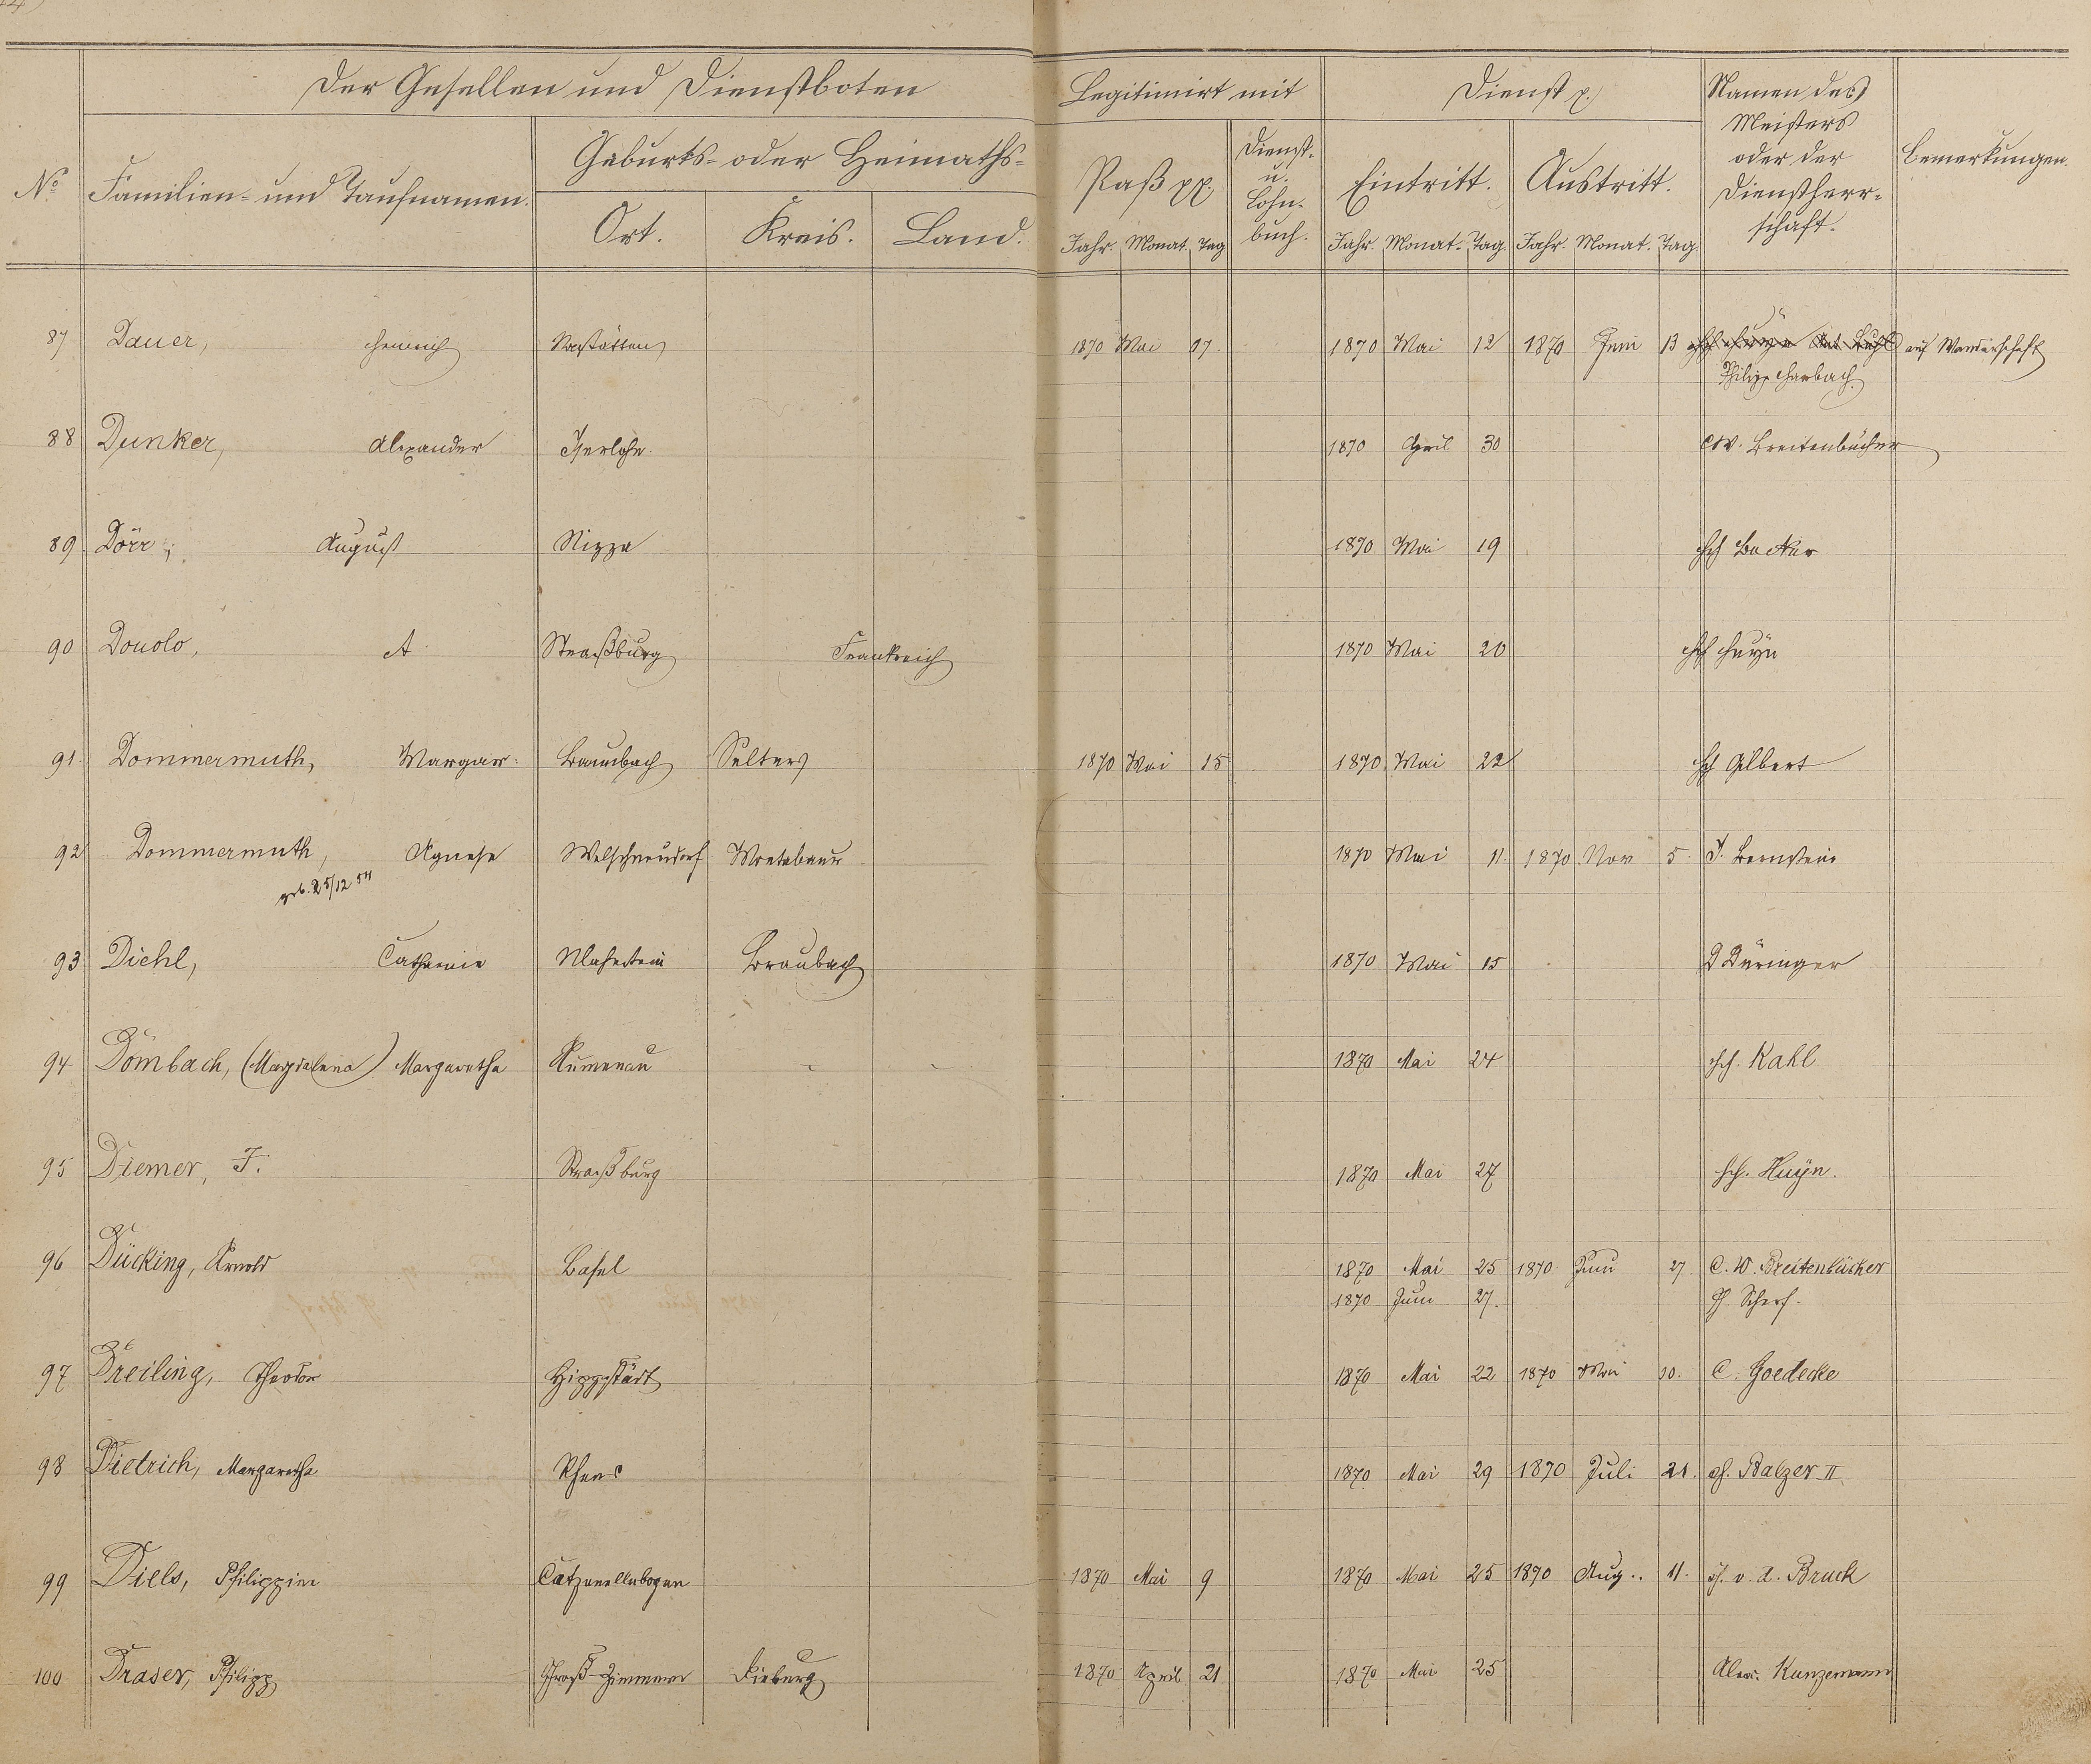 Der Gesellen und Dienstboten
Legitimirt mit
Dienst p.
Namen des
Meisters
oder der
Dienstherr-
schaft.
Bemerkungen.
No
Familien- und Taufnamen.
Geburts- oder Heimaths-
Ort. Kreis. Land.
Paß pp.
Jahr. Monat. Tag
Dienst-
u.
Lohn-
buch.
Eintritt.
Jahr. Monat. Tag.
Austritt.
Jahr. Monat. Tag.
87 Dauer, Heinrich Nastätten 1870 Mai 17. 1870 Mai 12 1870 Juni 13 auf Wanderschaft
Philipp Harbach
88 Dunker, Alexander Iserlohn. 1870 April 30 C W. Breitenbücher
89 Dörr, August Nizza 1870 Mai 19 Hch Becker
90 A Straßburg Frankreich 1870 Mai 20 Hch Huyn
91. Dommermuth, Margar. Baumbach Selters 1870 Mai 15 1870 Mai 22 Hch Gilbert
92 Dommermuth, Agnese Welschneudorf Montabaur 1870 Mai 11. 1870 Nov 5. J. Bernstein
geb. 25/12 54
93 Diehl, Catharine Braubach 1870 Mai 15 D Düringer
94 Dombach, (Magdalena) Margaretha Aumenau - - 1870 Mai 24 Hch. Kahl
95 Diemer, J. Straßburg 1870 Mai 27 Hch. Huyn.
96 Dücking, Arnold Basel 1870 Mai 25 1870 Juni 27 C. W. Breitenbücher
1870 Juni 27. Scherf.
97 Dreiling, Theodor Hippstädt 1870 Mai 22 1870 Mai 30. C. Goedecke
98 Dietrich, Margaretha Rhens 1870 Mai 29 1870 Juli 21. Balzer II
99 Diels, Philippine Catzenellnbogen 1870 Mai 9 1870 Mai 25 1870 Aug. 11. v. d. Bruck
100 Draser, Philipp Groß-Zimmern Dieburg 1870 April 21 1870 Mai 25 Alex. Kunzemann